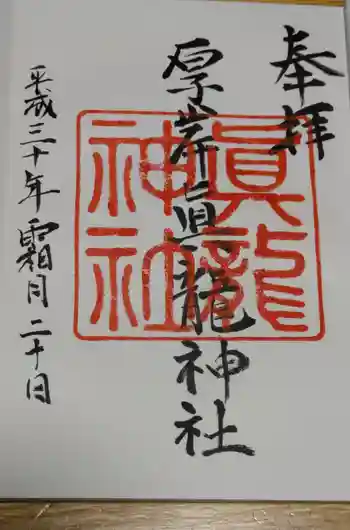 奉拝
厚岸眞龍神社
眞龍
神社
平成三十年霜月二十日